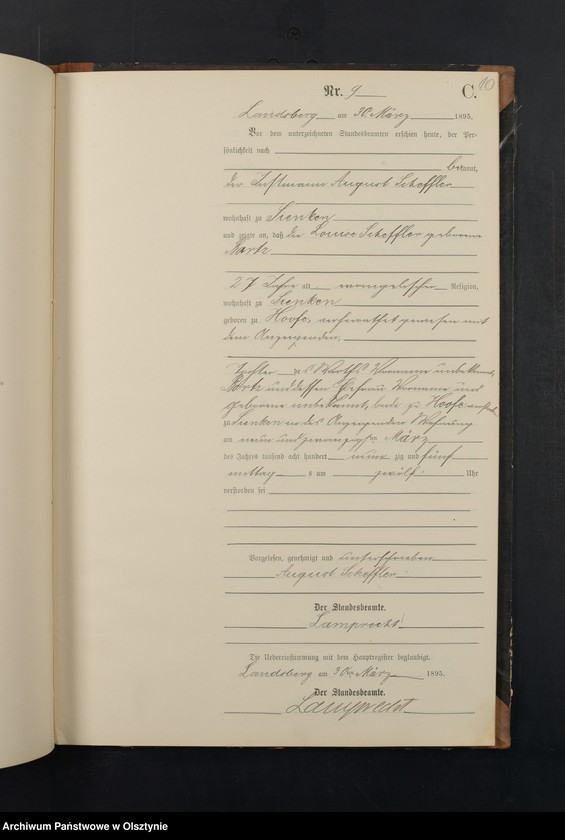 10
Nr. 9 C.
Landsberg am 30. März 1895.
Vor dem unterzeichneten Standesbeamten erschien heute, der Per-
sönlichkeit nach
bekannt,
der August Scheffler
wohnhaft zu Sienken
und zeigte an, daß die Louise Scheffler geborene
27 Jahre alt, evangelischer Religion,
wohnhaft zu Sienken
geboren zu Hoofe, verheirathet gewesen mit
dem Anzeigenden,
Tochter des Wirths Vorname unbekannt,
und dessen Ehefrau Vorname und
geborene unbekannt, beide zu Hoofe
zu Sienken in des Anzeigenden Wohnung
am neun und zwanzigsten März
des Jahres tausend acht hundert neun zig und fünf
mittag s um zwölf Uhr
verstorben sei
Vorgelesen, genehmigt und unterschrieben
August Scheffler
Der Standesbeamte.
Lamprecht
Die Uebereinstimmung mit dem Hauptregister beglaubigt.
Landsberg am 30. März 1895.
Der Standesbeamte.
Lamprecht
Archiwum Państwowe w Olsztynie